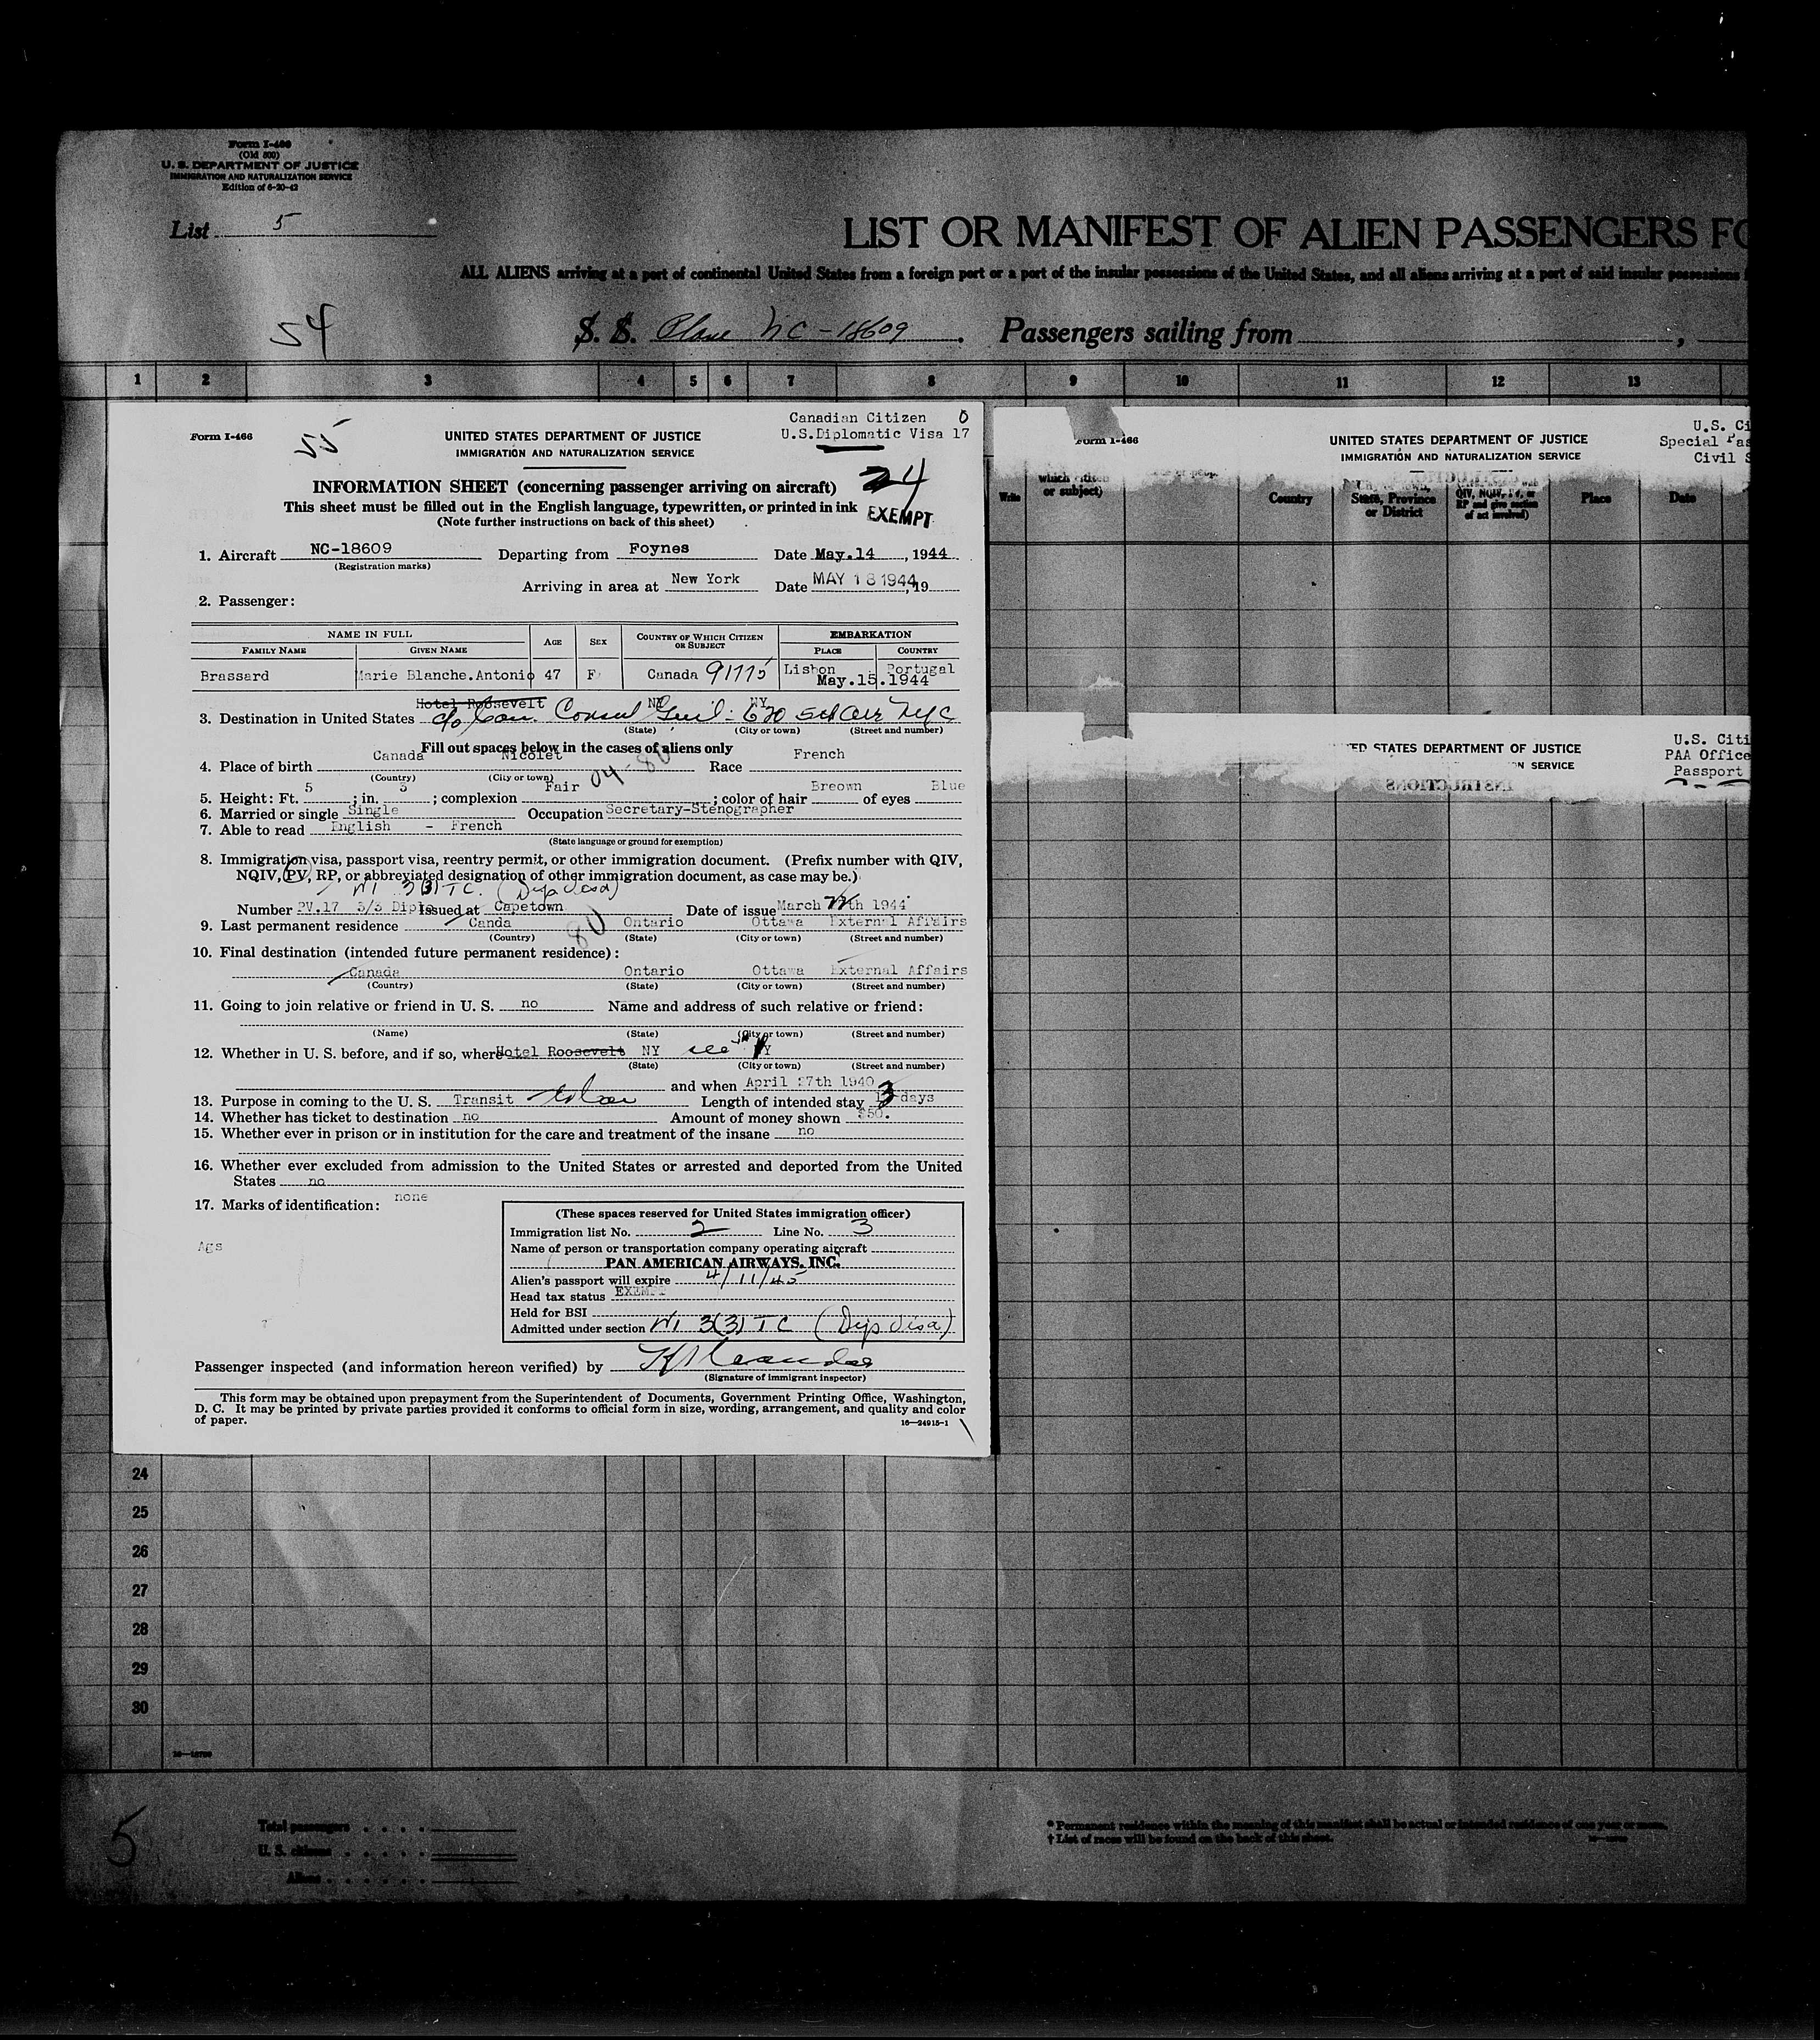 Form I-466
(Old 500)
U. S. DEPARTMENT OF JUSTICE
IMMIGRATION AND NATURALIZATION SERVICE
Edition of 6-20-42
List 5
LIST OR MANIFEST OF ALIEN PASSENGERS FO
ALL ALIENS arriving at a port of continental United States from a foreign port or a port of the insular possessions of the United States, and all aliens arriving at a port of said insular possessions
54
S. S. Plane NC-18609. Passengers sailing from ,
1 2 3 4 5 6 7 8 9 10 11 12 13
Canadian Citizen 0
Form I-466 55 UNITED STATES DEPARTMENT OF JUSTICE U.S.Diplomatic Visa 17
IMMIGRATION AND NATURALIZATION SERVICE
24
INFORMATION SHEET (concerning passenger arriving on aircraft)
This sheet must be filled out in the English language, typewritten, or printed in ink EXEMPT
(Note further instructions on back of this sheet)
1. Aircraft NC-18609 Departing from Foynes Date May.14, 1944
(Registration marks)
Arriving in area at New York Date MAY 18 1944, 19
2. Passenger:
NAME IN FULL AGE SEX COUNTRY OF WHICH CITIZEN OR SUBJECT EMBARKATION
FAMILY NAME GIVEN NAME PLACE COUNTRY
Brassard Marie Blanche.Antonio 47 F Canada 91775 Lisbon Portugal
May.15.1944
Hotel Roosevelt NY NY
3. Destination in United States c/o Can. Consul Genl. 620 5th Ave NYC
(State) (City or town) (Street and number)
Fill out spaces below in the cases of aliens only
4. Place of birth Canada Nicolet Race French
(Country) (City or town)
04-80
5. Height: Ft. 5; in. 3; complexion Fair; color of hair Breown of eyes Blue
6. Married or single Single Occupation Secretary-Stenographer
7. Able to read English - French
(State language or ground for exemption)
8. Immigration visa, passport visa, reentry permit, or other immigration document. (Prefix number with QIV,
NQIV, PV, RP, or abbreviated designation of other immigration document, as case may be.)
NI 3(3) TC. (Dip Visa)
Number PV.17 3/3 Diplo Issued at Capetown Date of issue March th 1944
9. Last permanent residence Canda 80 Ontario Ottawa External Affairs
(Country) (State) (City or town) (Street and number)
10. Final destination (intended future permanent residence):
Canada Ontario Ottawa External Affairs
(Country) (State) (City or town) (Street and number)
11. Going to join relative or friend in U. S. no Name and address of such relative or friend:
(Name) (State) (City or town) (Street and number)
12. Whether in U. S. before, and if so, where Hotel Roosevelt NY NY
(State) (City or town) (Street and number)
and when April 27th 1940
13. Purpose in coming to the U. S. Transit Length of intended stay 3 days
14. Whether has ticket to destination no Amount of money shown $50.
15. Whether ever in prison or in institution for the care and treatment of the insane no
16. Whether ever excluded from admission to the United States or arrested and deported from the United
States no
17. Marks of identification: none
Ags
(These spaces reserved for United States immigration officer)
Immigration list No. 2 Line No. 3
Name of person or transportation company operating aircraft
PAN AMERICAN AIRWAYS, INC.
Alien's passport will expire 4/11/45
Head tax status EXEMPT
Held for BSI
Admitted under section NI 3(3) TC (Dip Visa)
Passenger inspected (and information hereon verified) by
(Signature of immigrant inspector)
This form may be obtained upon prepayment from the Superintendent of Documents, Government Printing Office, Washington,
D. C. It may be printed by private parties provided it conforms to official form in size, wording, arrangement, and quality and color
of paper.
16-24915-1
Form I-466 UNITED STATES DEPARTMENT OF JUSTICE
IMMIGRATION AND NATURALIZATION SERVICE
U.S. Ci
Special Pas
Civil S
which citizen
or subject)
Country
State, Province
or District
QIV, NQIV, PV, or
RP and give section
of act involved)
Place
Date
TED STATES DEPARTMENT OF JUSTICE
ON SERVICE
INSTRUCTIONS
U.S. Citi
PAA Office
Passport
24
25
26
27
28
29
30
5
Total passengers
U. S. citizens
Aliens
* Permanent residence within the meaning of this manifest shall be actual or intended residence of one year or more.
† List of races will be found on the back of this sheet.